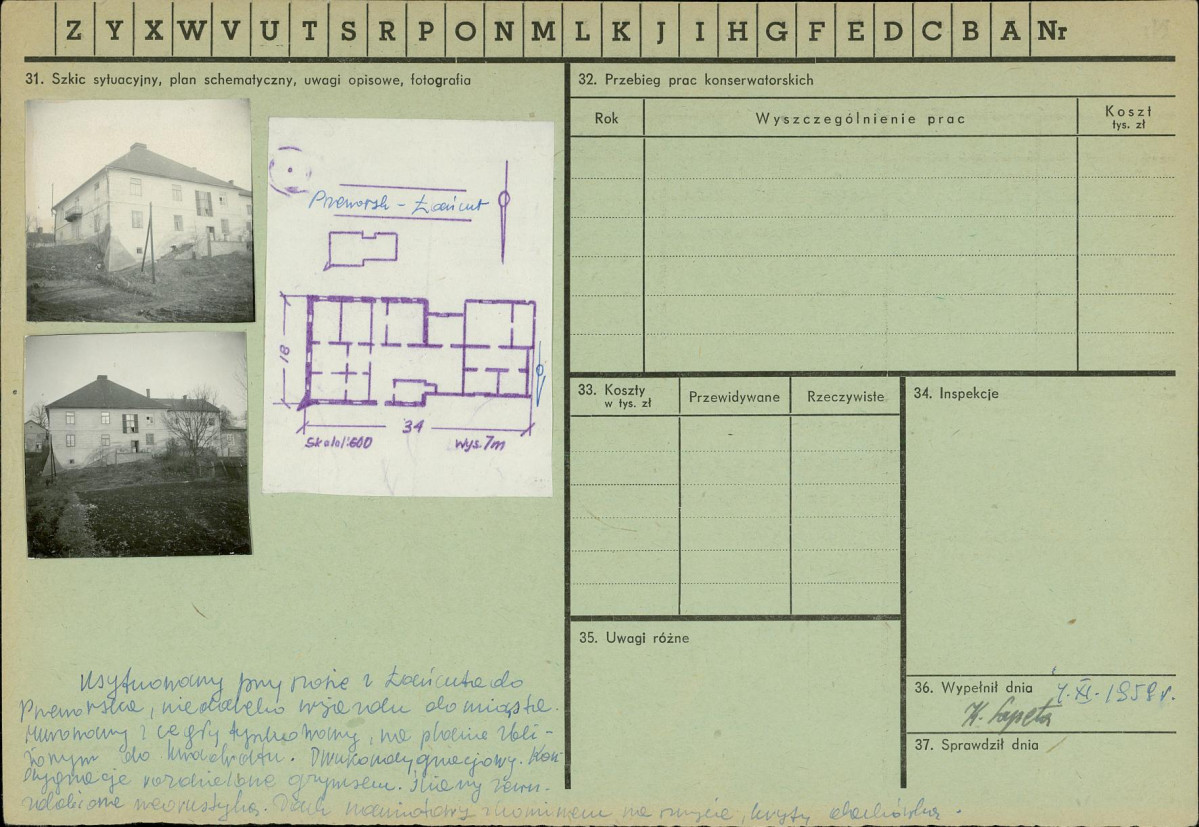 Z Y X W V U T S R P O N M L K J I H G F E D C B A Nr
31. Szkic sytuacyjny, plan schematyczny, uwagi opisowe, fotografia
Przeworsk - Łańcut
18
34
Skala 1:600 Wys. 7m
Usytuowany przy szosie z Łańcuta do
Przeworska, niedaleko wjazdu do miasta.
Murowany z cegły tynkowany, na planie zbli-
żonym do kwadratu. Dwukondygnacyjowy. Kon
dygnacje rozdzielone gzymsem. Ściany zewn.
zdobione Dach namiotowy z kominem na szczycie, kryty dachówką.
32. Przebieg prac konserwatorskich
Rok Wyszczególnienie prac Koszt
tys. zł
33. Koszty
w tys. zł
Przewidywane Rzeczywiste
34. Inspekcje
35. Uwagi różne
36. Wypełnił dnia 4.XI.1959r.
37. Sprawdził dnia